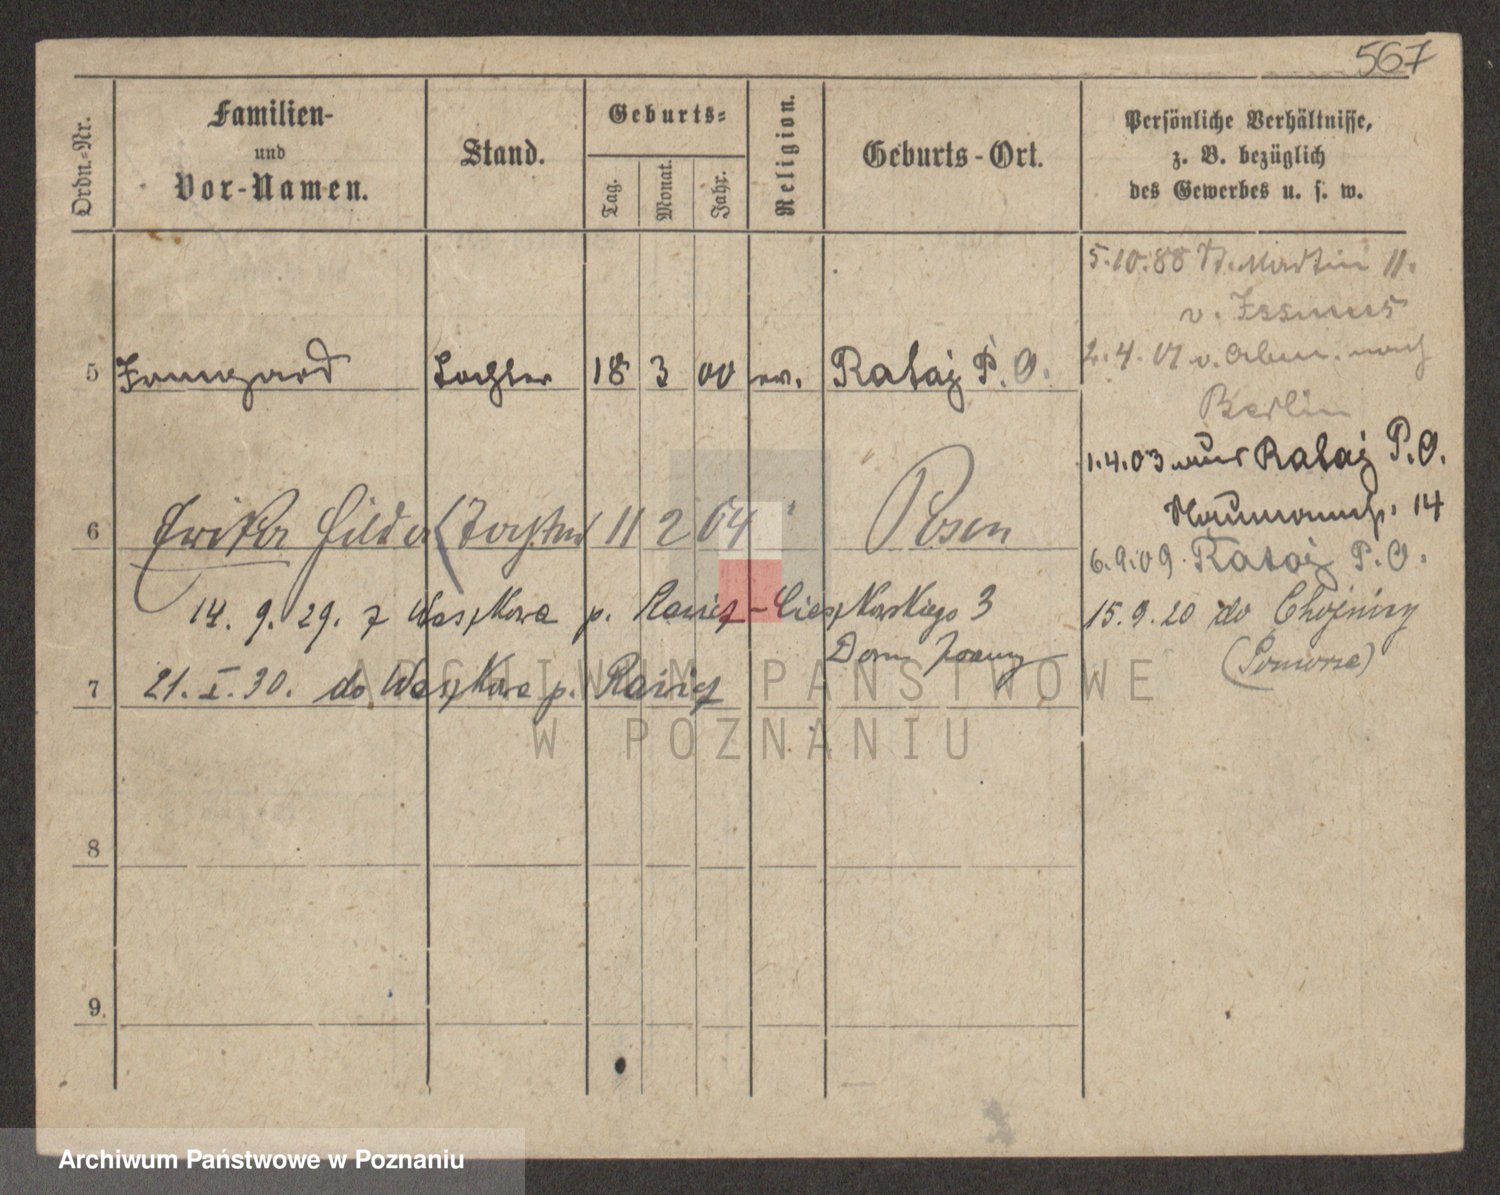 567
Ordn.-Nr.
Familien-
und
Vor-Namen.
Stand.
Geburts-
Tag.
Monat.
Jahr.
Religion.
Geburts-Ort.
Persönliche Verhältnisse,
z. B. bezüglich
des Gewerbes u. s. w.
5.10.88 St. Martin 11.
v.
2.4.01 v. nach
Berlin
5 Irmgard Tochter 18 3 00 ev. Rataj P. O.
1.4.03 aus Rataj P. O.
Naumannstr. 14
6 Erika Hilda (Tochter) 11 2 04 Posen
6.9.09. Rataj P. O.
14. 9. 29. z Waszkowa p. Rawicz - Cieszkowskiego 3
15.9.20 do Chojnicy
Dom
(Pomorze)
7 21. I. 30. do Waszkowa p. Rawicz
8
9.
ARCHIWUM PAŃSTWOWE
W POZNANIU
Archiwum Państwowe w Poznaniu